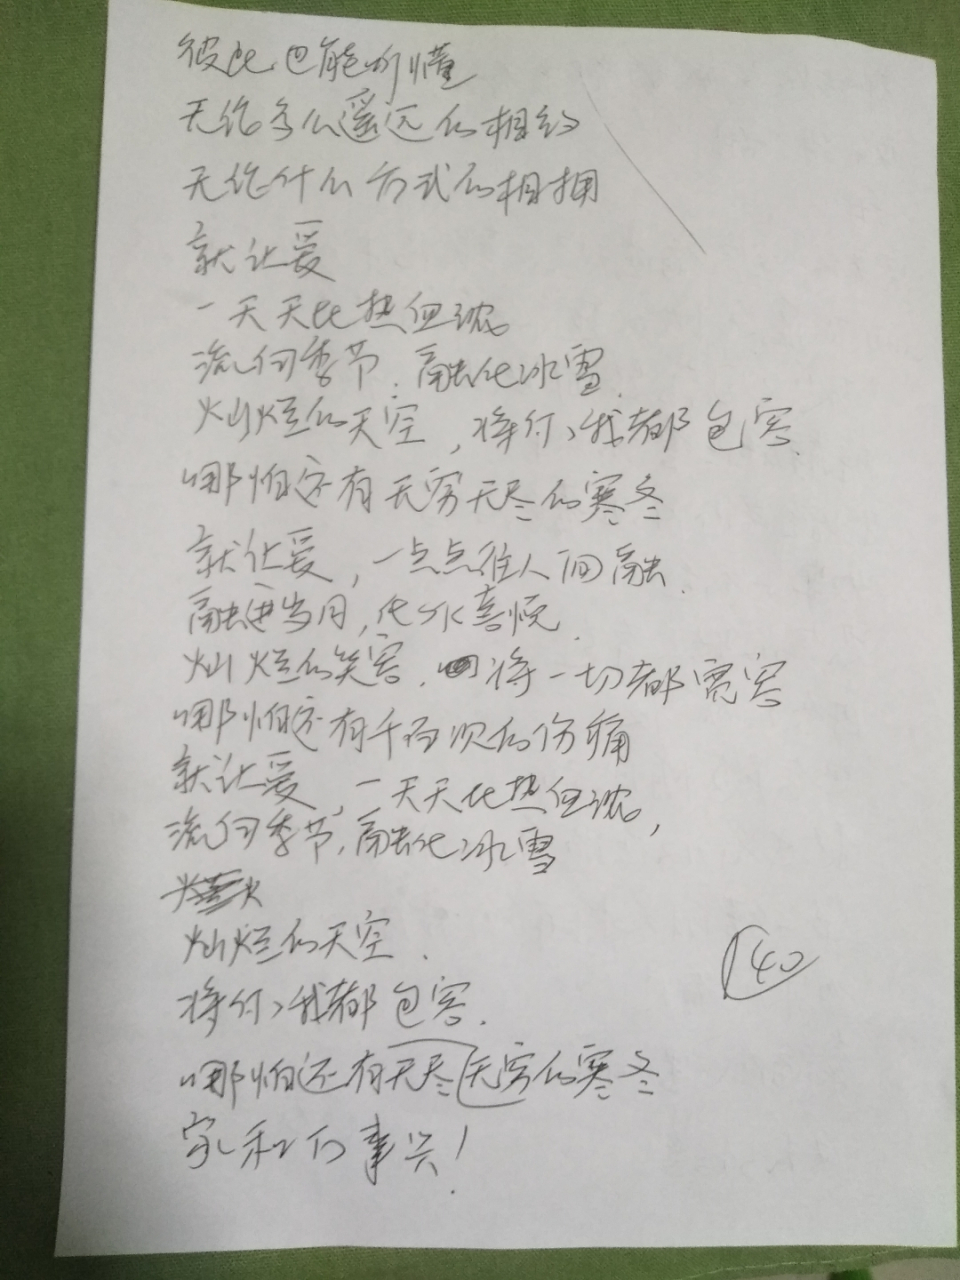 彼此也能听懂
无论多么遥远的相约
无论什么方式的相拥
就让爱
一天天比热血浓。
流向季节，融化冰雪，
灿烂的天空，将你我都包容，
哪怕还有无穷无尽的寒冬
就让爱，一点点往人间融，
融进岁月，化成喜悦，
灿烂的笑容，将一切都宽容
哪怕还有千百次的伤痛
就让爱，一天天比热血浓，
流向季节，融化冰雪
灿烂的天空，
将你我都包容，
哪怕还有无尽无穷的寒冬
家和万事兴！
140